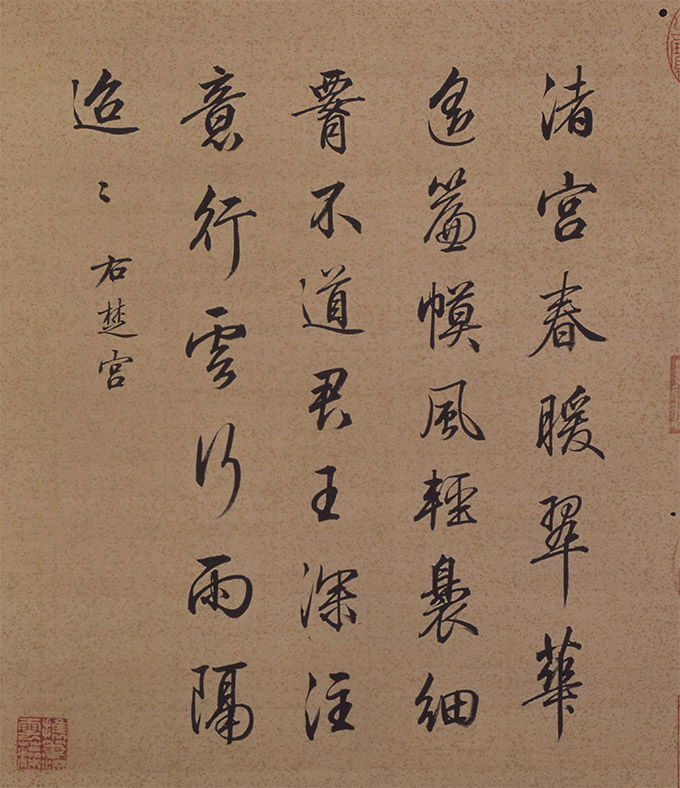 渚宮春暖翠華
遙簾幙風輕裊細
霄不道君王深注
意行雲行雨隔
迢〻
右楚宮